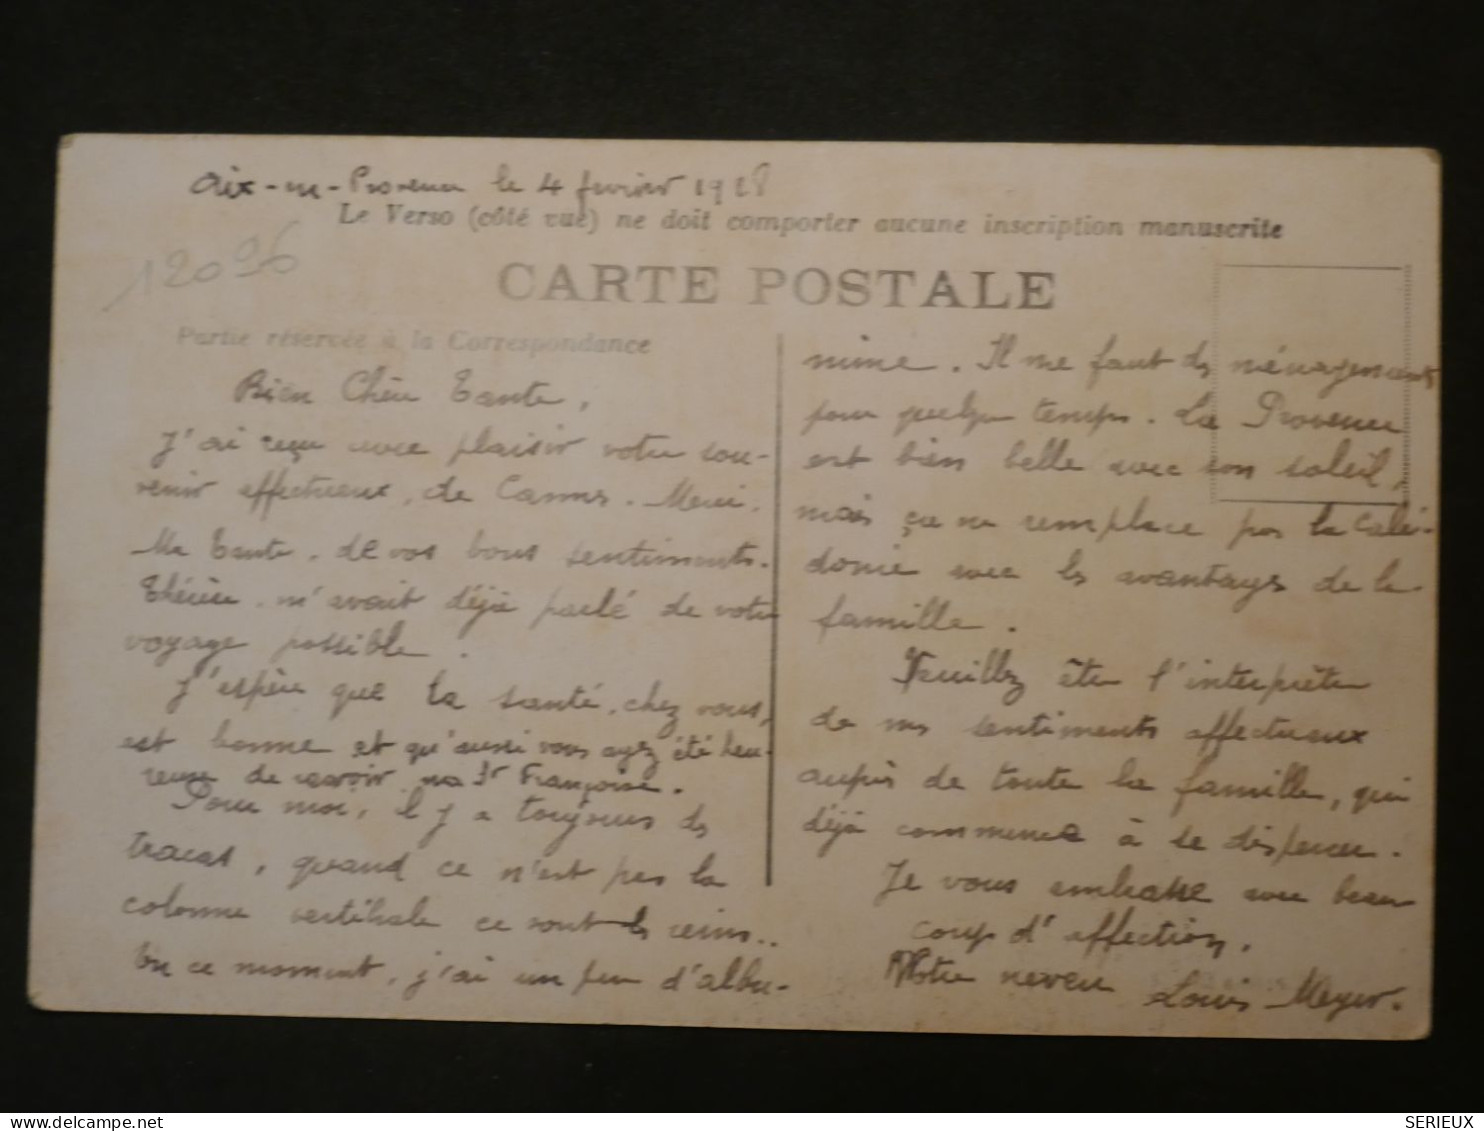 Aix-en-Provence le 4 février 1928
Le Verso (côté vue) ne doit comporter aucune inscription manuscrite
12096
CARTE POSTALE
Partie réservée à la Correspondance
Bien Chère Tante,
J'ai reçu avec plaisir votre sou-
venir affectueux, de Cannes. Merci.
Ma Tante, de vos bons sentiments.
Thérèse m'avait déjà parlé de votre
voyage possible.
J'espère que la santé, chez vous,
est bonne et qu'aussi vous ayez été heu-
reuse de revoir ma Sr Françoise.
Pour moi, il y a toujours des
tracas, quand ce n'est pas la
colonne vertébrale ce sont les reins..
En ce moment, j'ai un peu d'albu-
mine. Il me faut des ménagements
pour quelque temps. La Provence
est bien belle avec son soleil,
mais ça ne remplace pas la Calé-
donie avec les avantages de la
famille.
Veuillez être l'interprète
de mes sentiments affectueux
auprès de toute la famille, qui
déjà commence à se disperser.
Je vous embrasse avec beau
coup d'affection.
Votre neveu Louis Meyer.
SERIEUX